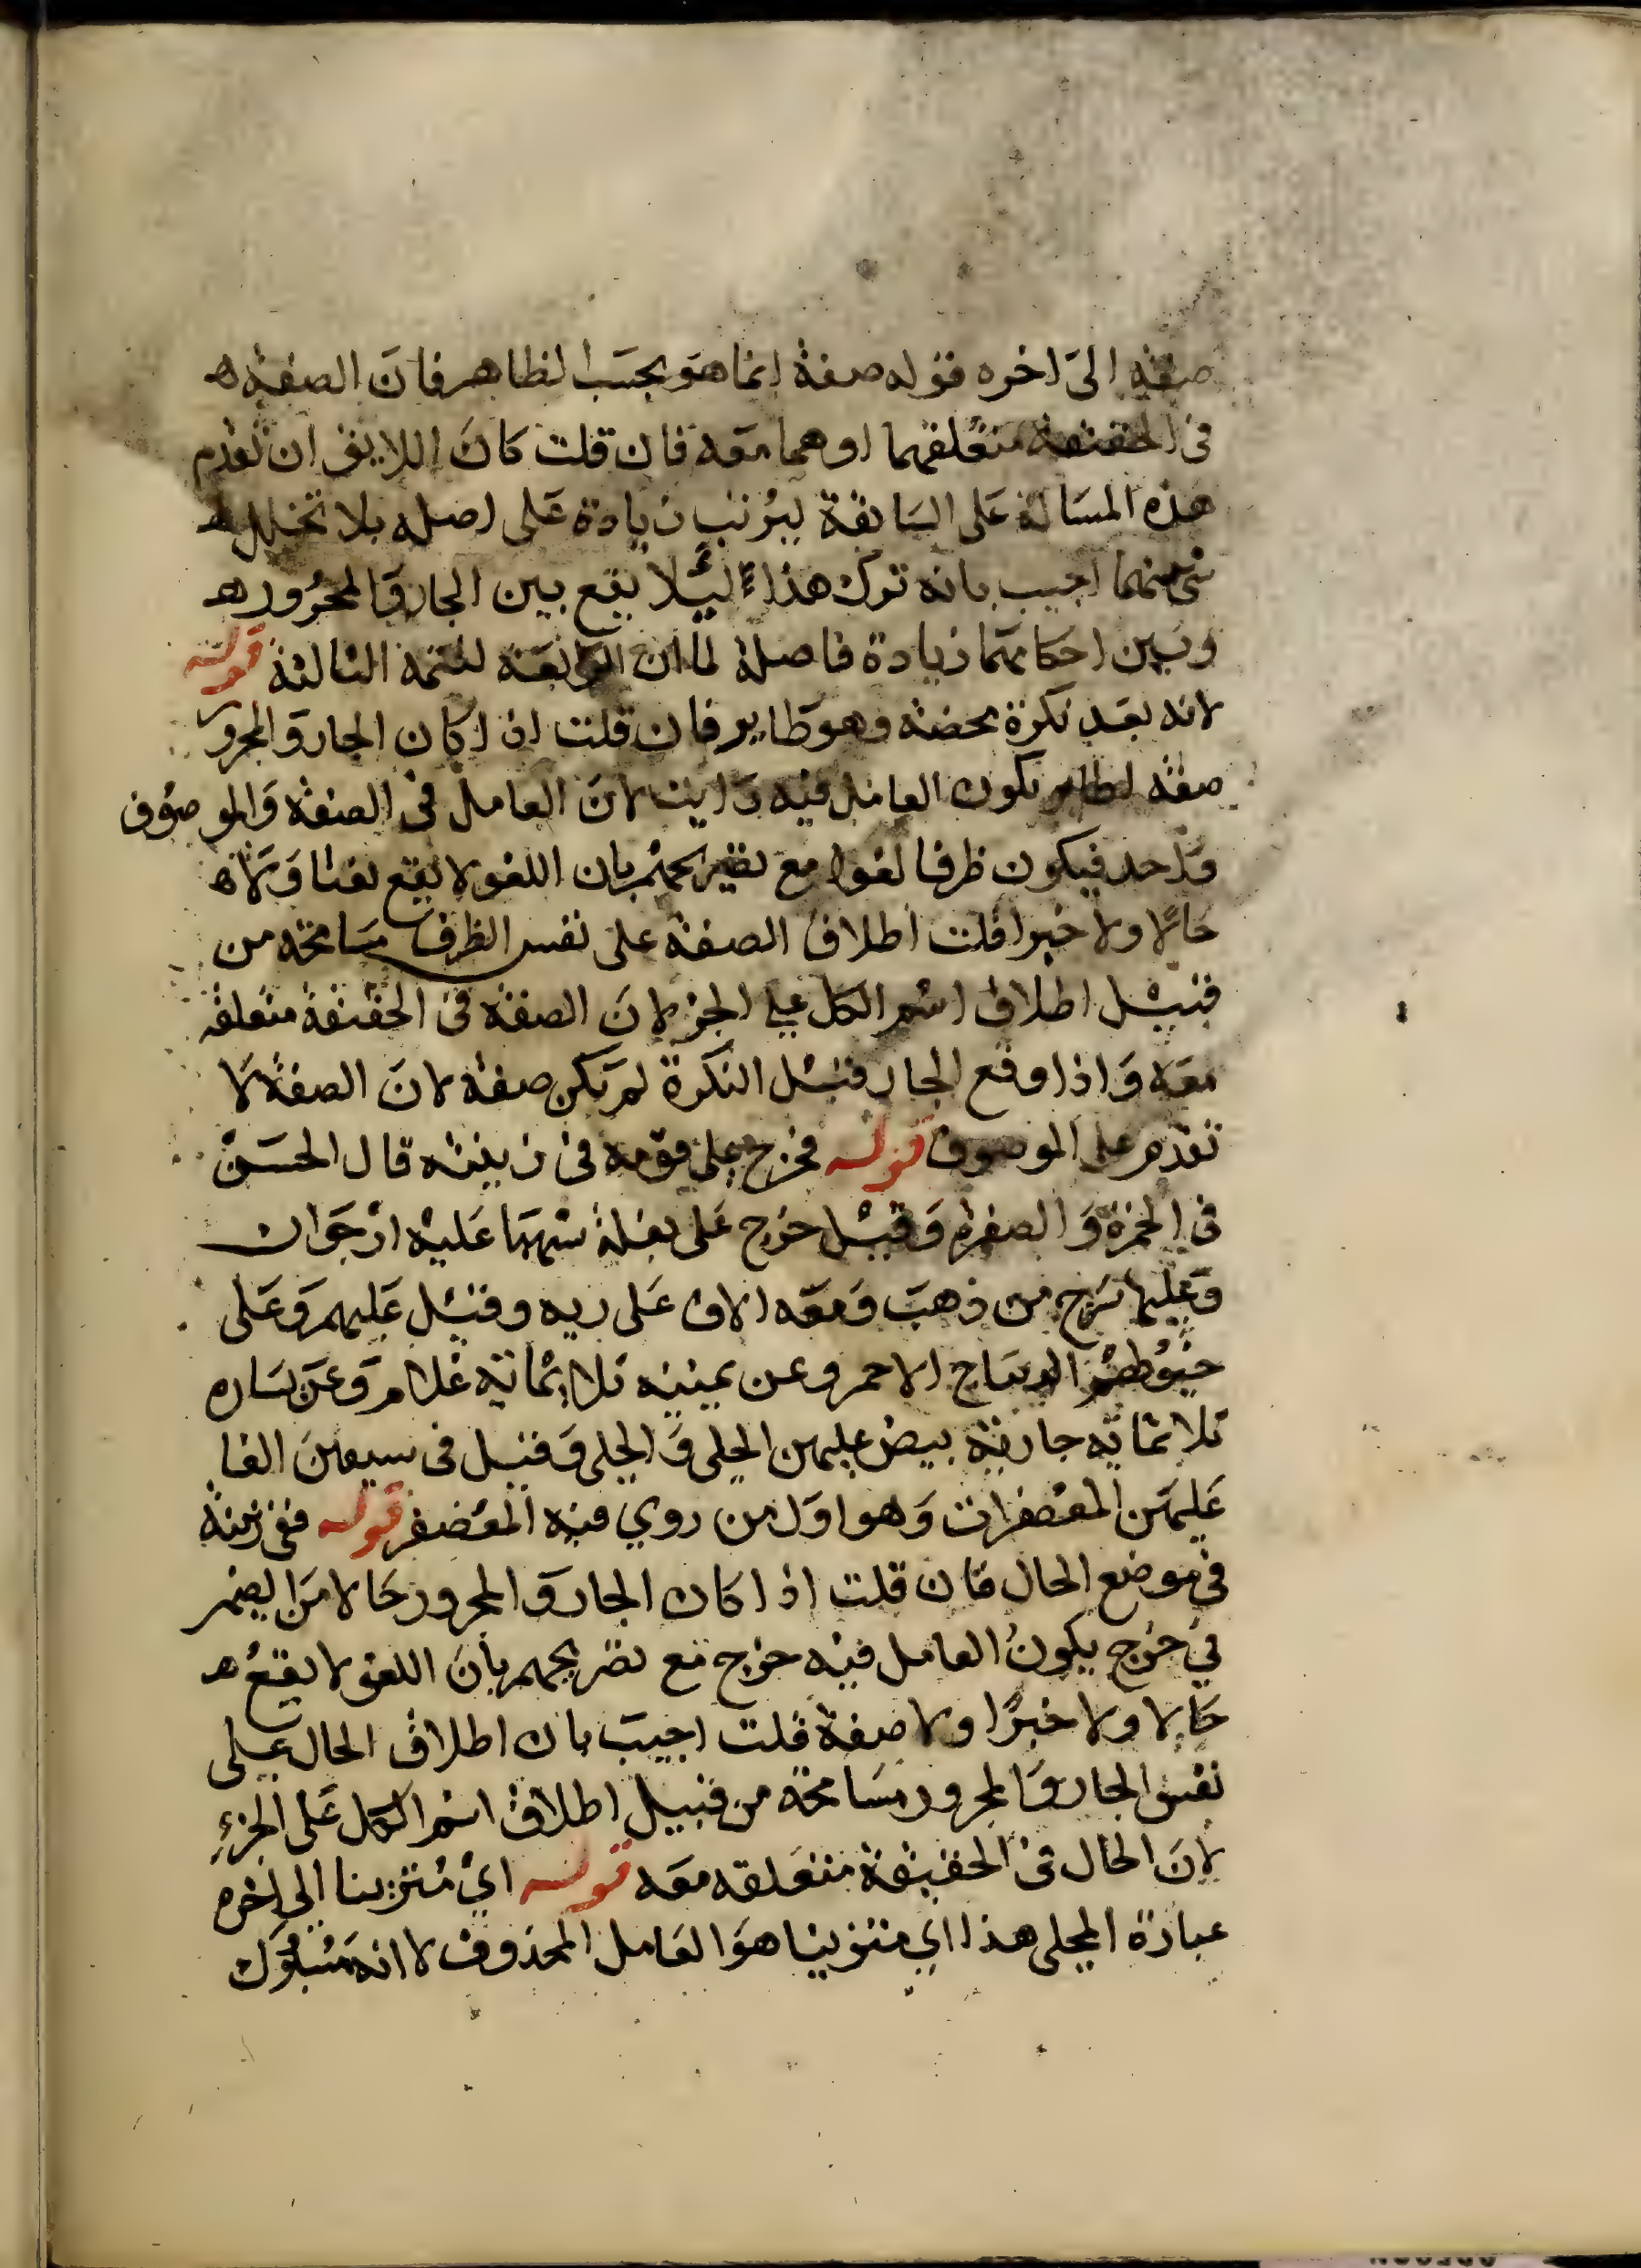 صفة الى اخره قوله صفة انما هو بحسب الظاهر فان الصفة ه
فى الحقيقة متعلقهما او هما معه فان قلت كان اللايق ان تقدم
هذه المسالة على السابقة ليرتب زيادة على اصله بلا تخلل ه
شى منهما اجيب بانه ترك هذا ليلا يقع بين الجار والمجرور ه
وبين احكامهما زيادة فاصلة لما ان الرابعة لتتمة الثالثة قوله
لانه بعد نكرة محضة وهو طاير فان قلت اذا كان الجار والمجرور
صفة لطاير يكون العامل فيه رايت لان العامل فى الصفة والموصوف
واحد فيكون ظرفا لغوا مع تصريحهم بان اللغو لا يقع نعتا ولا ه
حالا ولا خبرا قلت اطلاق الصفة على نفس الظرف مسامحة من
قبيل اطلاق اسم الكل على الجز لان الصفة فى الحقيقة متعلقه
معه واذا وقع الجار قبل النكرة لم تكن صفة لان الصفة لا
تقدم على الموصوف قوله فخرج على قومه فى زينته قال الحسن
فى الحمرة والصفرة وقيل خرج على بغلة شهبا عليه ارجوان
وعليها سرج من ذهب ومعه الاف على زيه وقيل عليهم وعلى
خيولهم الديباج الاحمر وعن يمينه ثلاثماية غلام وعن يساره
ثلاثماية جارية بيض عليهن الحلى والحلى وقيل فى سبعين الفا
عليهن المعصفرات وهو اول من روي فيه المعصفر قوله ففى زينته
فى موضع الحال فان قلت اذا كان الجار والمجرور حالا من الضمير
في خرج يكون العامل فيه خرج مع تصريحهم بان اللغو لا يقع ه
حالا ولا خبرا ولا صفة قلت اجيب بان اطلاق الحال على
نفس الجار والمجرور مسامحة من قبيل اطلاق اسم الكل على الجزء
لان الحال فى الحقيقة متعلقه معه قوله اي متزينا الى اخره
عبارة المحلى هذا اي متزينا هو العامل المحذوف لا انه